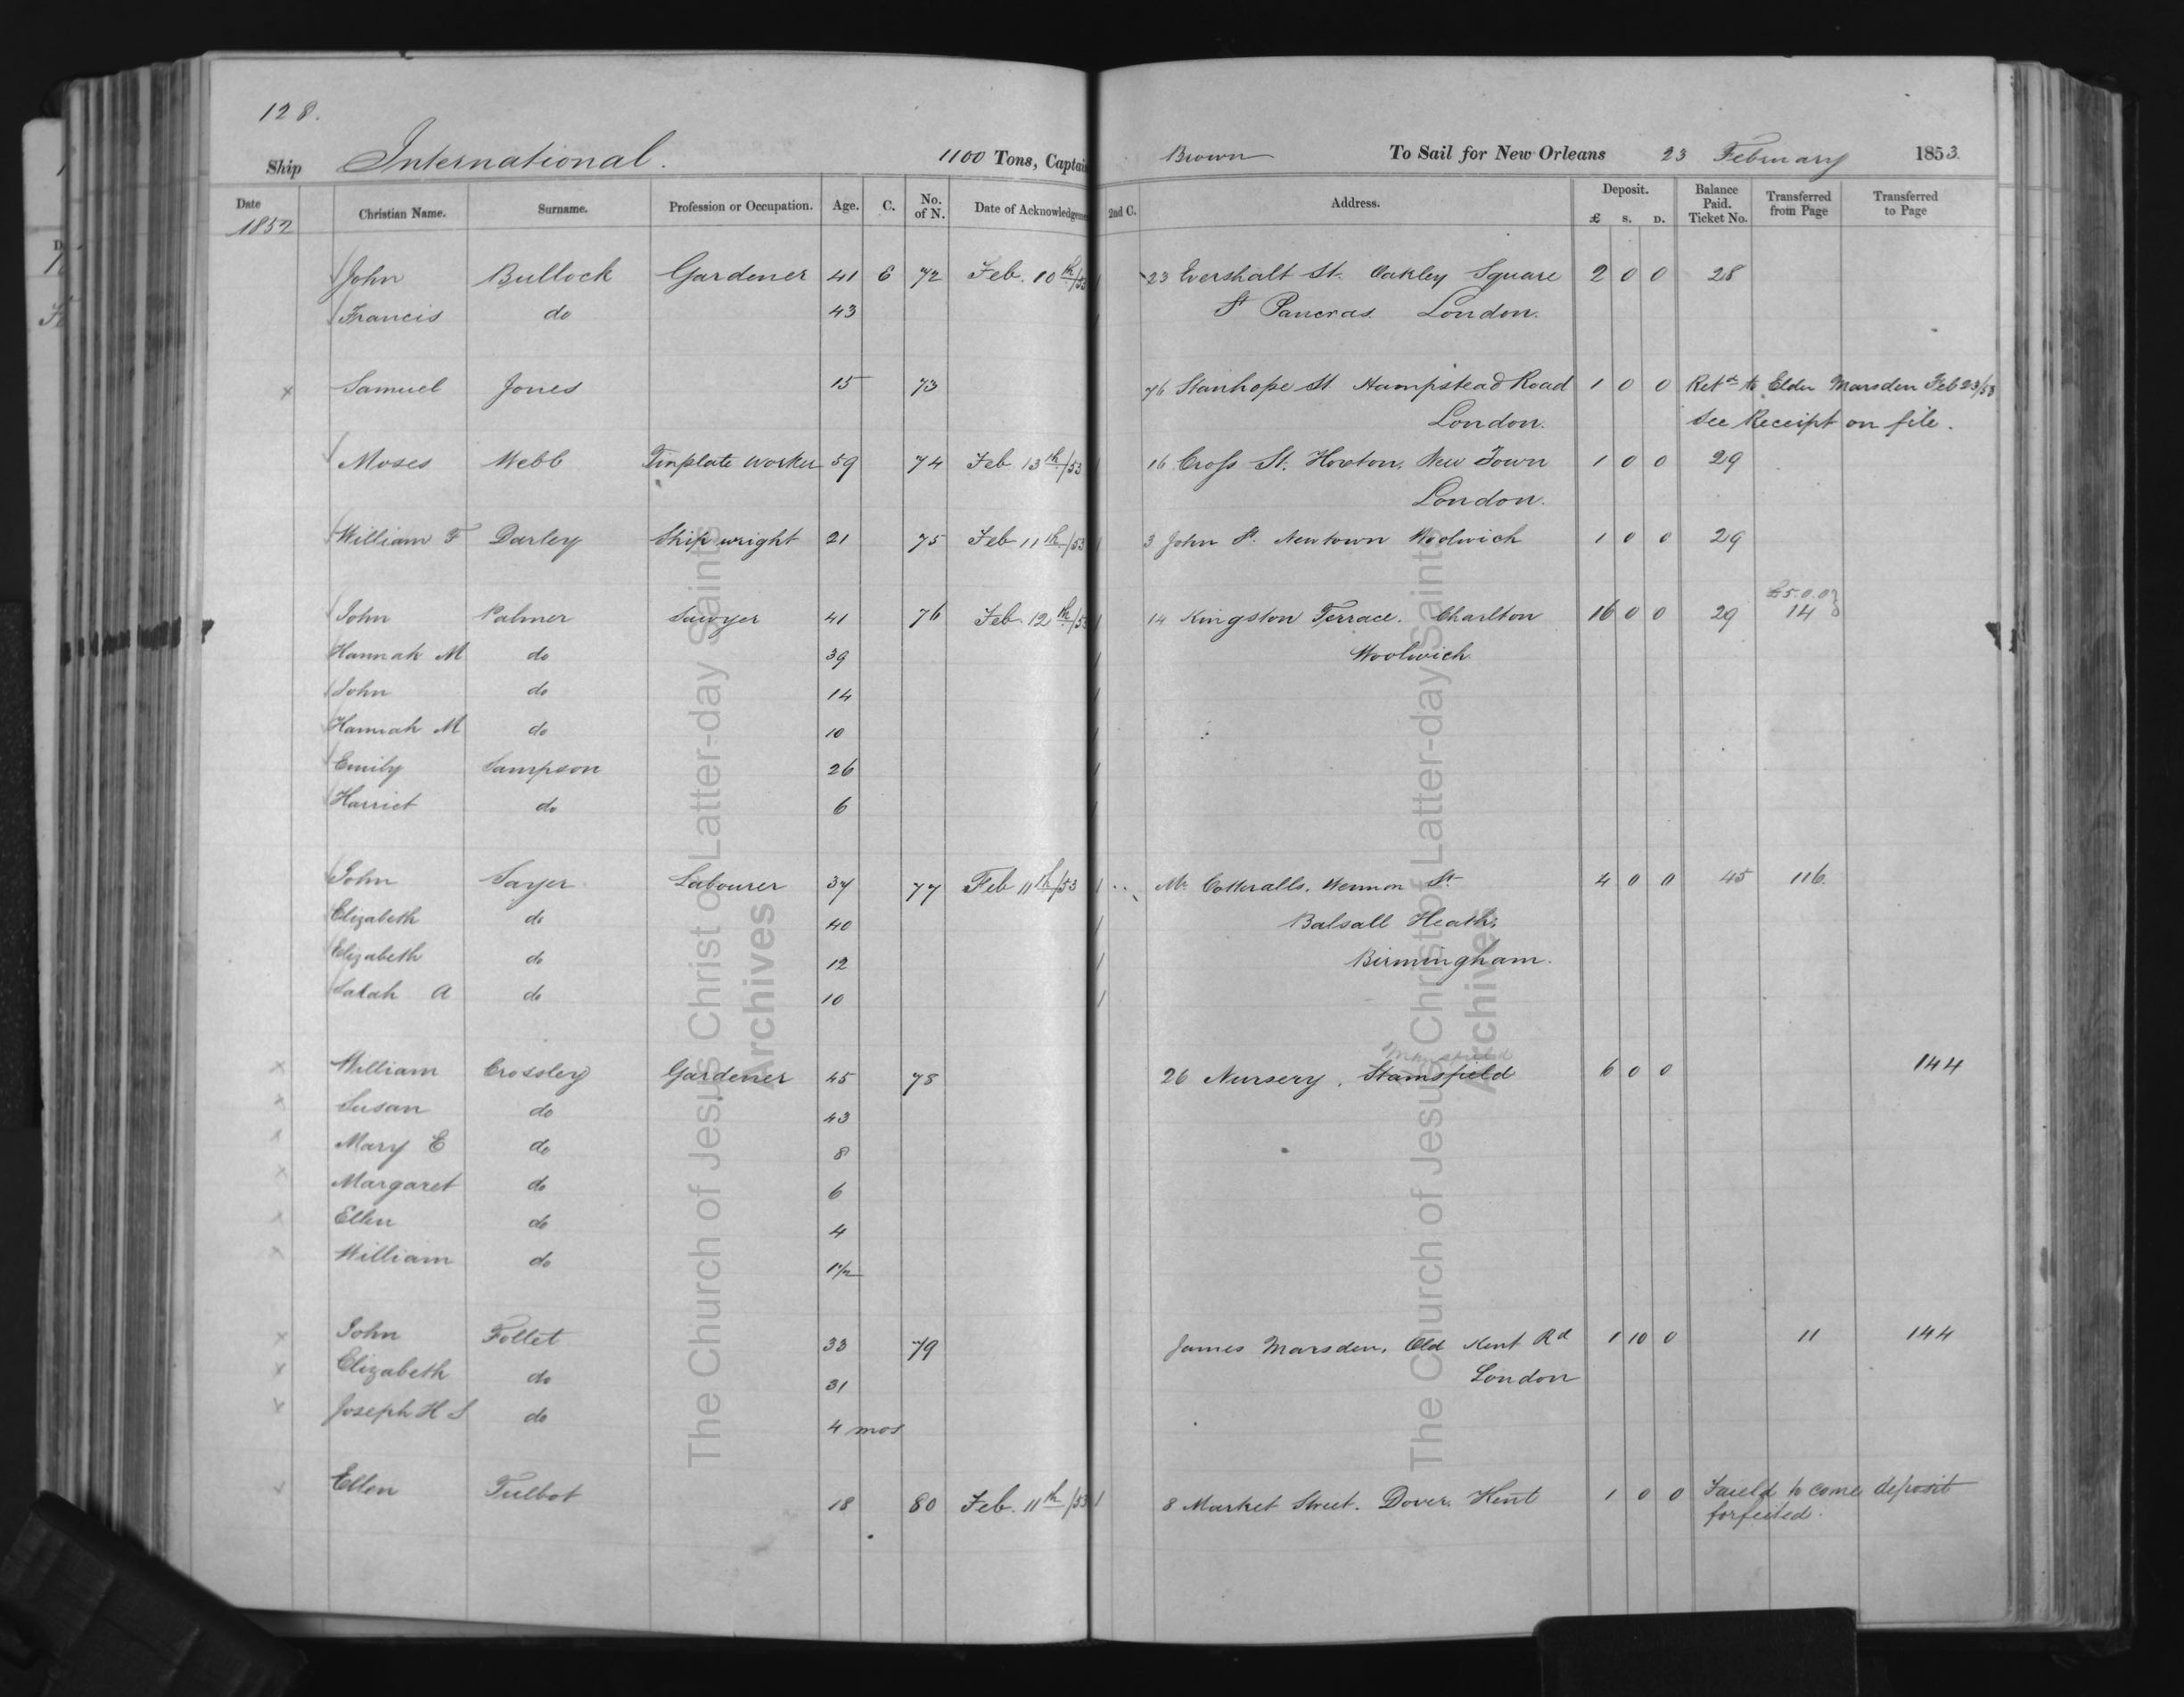 128.
Ship International. 1100 Tons, Captain Brown To Sail for New Orleans 23 February 1853.
Date Christian Name. Surname. Profession or Occupation. Age. C. No. of N. Date of Acknowledgement 2nd C. Address. Deposit. £ s. D. Balance Paid. Ticket No. Transferred from Page Transferred to Page
1852
John Bullock Gardener 41 6 72 Feb. 10th/53 23 Evershalt St. Oakley Square 2 0 0 28
Francis do 43 St Pancras. London.
x Samuel Jones 15 73 76 Stanhope St Hampstead Road 1 0 0 Retd to Elder Marsden Feb 23/53
London. See Receipt on file.
Moses Webb Tinplate Worker 59 74 Feb 13th/53 16 Cross St. Hoxton, New Town 1 0 0 29
London.
William F Darley Ship wright 21 75 Feb 11th/53 3 John St. Newtown Woolwich 1 0 0 29
£5.0.0
John Palmer Sawyer 41 76 Feb. 12th/53 14 Kingston Terrace. Charlton 16 0 0 29 14
Hannah M do 39 Woolwich
John do 14
Hannah M do 10
Emily Sampson 26
Harriet do 6
John Sayer Labourer 37 77 Feb 11th/53 Mr Cotteralls. Wennon St 4 0 0 45 116.
Elizabeth do 40 Balsall Heath,
Elizabeth do 12 Birmingham.
Sarah A do 10
Mansfield
x William Crossley Gardener 45 78 26 Nursery, Stamsfield 6 0 0 144
x Susan do 43
x Mary E do 8
x Margaret do 6
x Ellen do 4
x William do 1 1/2
x John Follet 33 79 James Marsden, Old Kent Rd 1 10 0 11 144
x Elizabeth do 31 London
x Joseph H S do 4 mos
x Ellen Tulbot 18 80 Feb. 11th/53 8 Market Street. Dover. Kent 1 0 0 Faield to come deposit
forfeited.
The Church of Jesus Christ of Latter-day Saints
Archives
The Church of Jesus Christ of Latter-day Saints
Archives